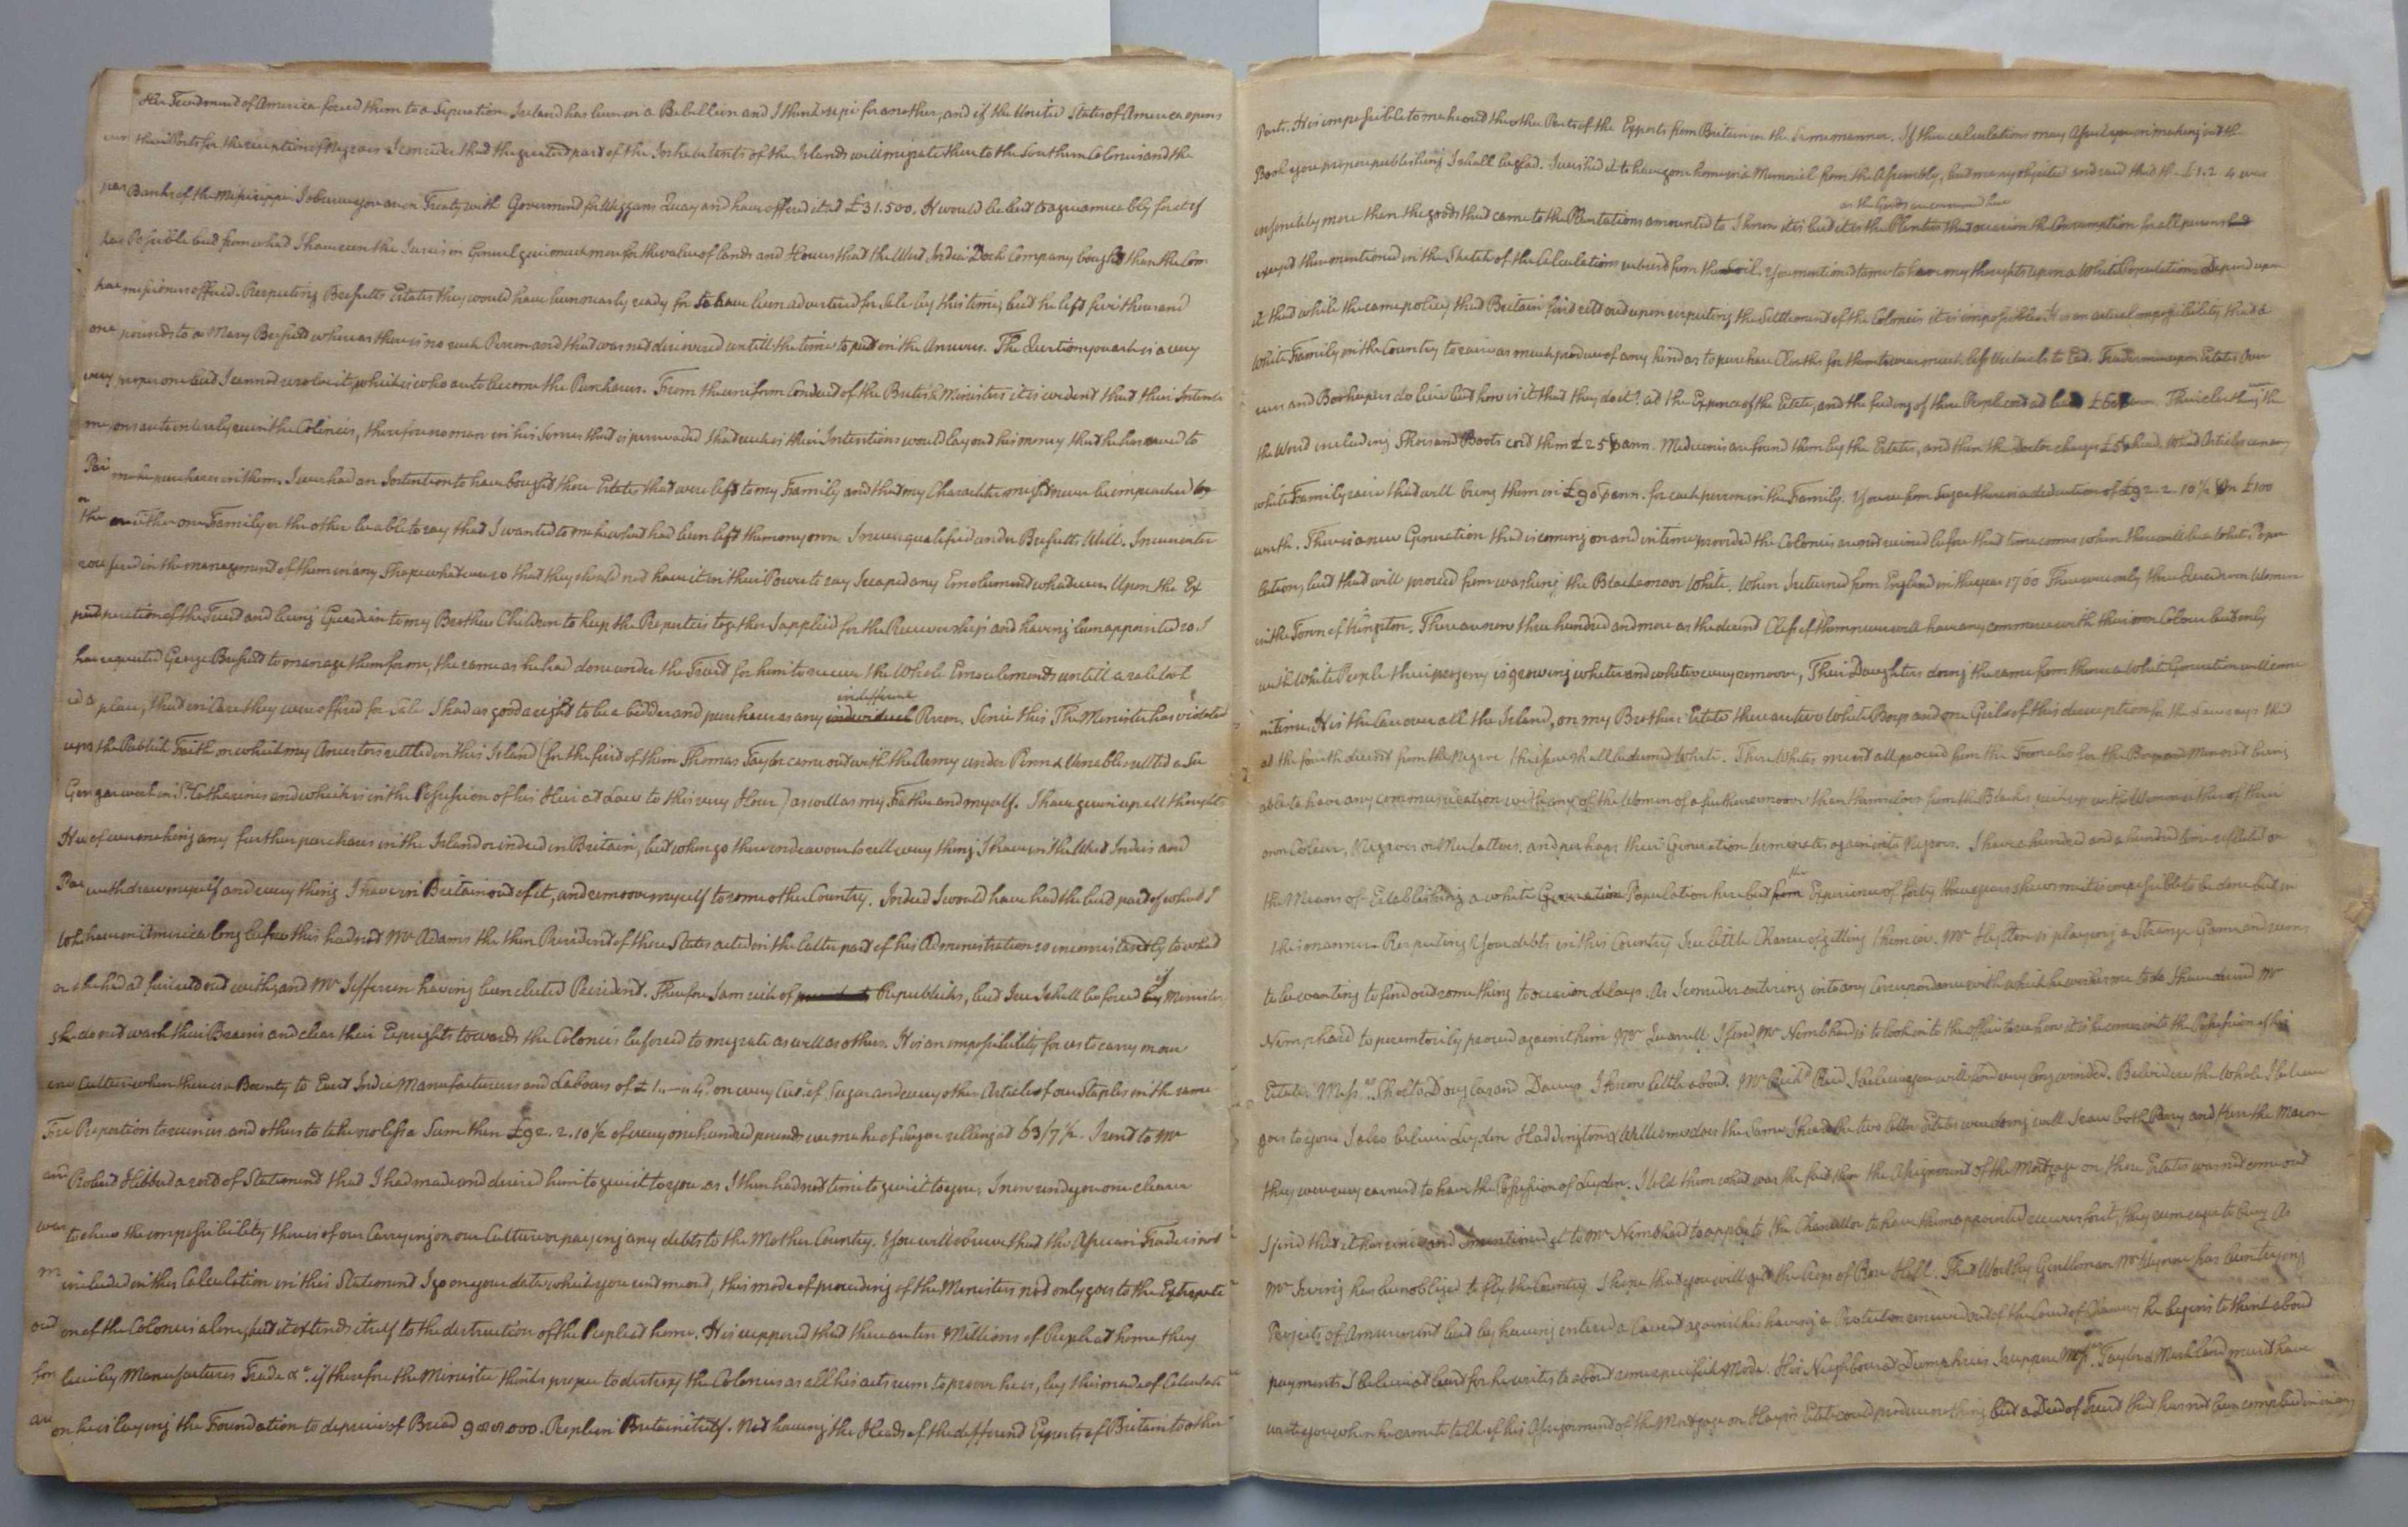 Her Treatment of America forced them to a Seperation. Ireland has been in a Rebellion and I think ripe for another, and if the United States of America opens
their Ports for the reception of Negroes I consider that the greatest part of the Inhabitants of the Islands will migrate there to the Southern Colonies and the
Banks of the Missisippi. I observe you are in Treaty with Government for Wiggans Quay and have offered it at £31.500. It would be best to agree amicably for it if
Possible but from what I have seen the Juries in General give a much more for the value of Lands and Houses that the West India Dock Company bought than the Com
missioners offered. Respecting Bessutts Estates they would have been nearly ready for to have been advertized for Sale by this time, but he left five thousand
pounds to a Mary Bessutt whereas there is no such Person and that was not discovered untill the time to put in the Answers. The Question you ask is a very
proper one but I cannot resolve it, which is who are to become the Purchasers. From the uniform Conduct of the British Ministers it is evident that their Intenti
ons are to intirely ruin the Colonies, therefore no man in his Senses that is perswaded that such is their Intentions would lay out his money that he has saved to
make purchases in them. I ever had an Intention to have bought those Estates that were left to my Family and that my Charachter might never be impeached by
or either one Family or the other be able to say that I wanted to make what had been left them my own. I never qualified under Bessutts Will. I never inter
fered in the management of them in any Shape whatever so that they should not have it in their Power to say I reaped any Emolument whatever. Upon the Ex
piration of the Trust and being Guardian to my Brothers Children to keep the Properties together I applied for the Receivership and having been appointed so. I
requested George Bessutt to manage them for me, the same as he had done under the Trust for him to receive the Whole Emoluments untill a sale took
place, that in Case they were offered for Sale I had as good a right to be a bidder and purchaser as any indifferent Person. Since this The Minister has violated
the Publick Faith on which my Ancestors settled in this Island (for the first of them Thomas Taylor came out with the Army under Penn & Venables settled a Su
gar work in St. Catharines and which is in the Possession of his Heir at Law to this very Hour) as well as my Father and myself. I have given up all thoughts
of ever making any further purchases in the Island or indeed in Britain, but when go there endeavour to sell every thing I have in the West Indies and
withdraw myself and every thing I have in Britain out of it, and remoove myself to some other Country. Indeed I would have had the best part of what I
have in America long before this had not Mr Adams the then President of those States acted in the latter part of his Administration so inconsistantly to what
he had at first set out with, and Mr Jefferson having been elected President. Therefore I am sick of Republicks, but I see I shall be forced if Ministers
do not wash their Brains and clear their Eyesights towards the Colonies be forced to migrate as well as others. It is an impossibility for us to carry on our
Culture when there is a Bounty to East India Manufacturers and Labours of £1..—..4d. on every Cwt. of Sugar and every other Article of our Staples in the same
Proportion to ruin us and others to take no less a Sum than £92.2.10½ of every one hundred pounds we make of Sugar selling at 63/7½. I send to Mr
Robert Hibbert a sort of Statement that I had made and desired him to give it to you as I then had not time to give it to you; I now send you one clearer
to shew the impossibility there is of our Carrying on our Culture or paying any debts to the Mother Country. You will observe that the African Trade is not
included in this Calculation in this Statement. I go on your data which you sent me out, this mode of proceeding of the Ministers not only goes to the Extirpati
on of the Colonies alone, but it extends itself to the destruction of the People at home. It is supposed that there are ten Millions of People at home they
live by Manufactures Trade &c. if therefore the Minister thinks proper to destroy the Colonies as all his acts seem to proove he is, by this mode of Calculati
on he is laying the Foundation to deprive of Bread People in Britain itself. Not having the Heads of the different Exports of Britain to other
Parts. It is impossible to make out the other Parts of the Exports from Britain in the same manner. If these calculations may assist you in making out the
Book you propose publishing I shall be glad. I wished it to have gone home in a Memorial from the Assembly, but many objected and said that the £1.2.4 was
as the Goods are consumed here
infinitely more than the goods that came to the Plantations amounted to. I know it is but it is the Planters that occasion the Consumption for all persons
except those mentioned in the Sketch of the Calculations subsist from the Soil. You mention to me to have my thoughts upon a White Population. Depend upon
it that while the same policy that Britain first sett out upon respecting the Settlement of the Colonies it is impossible. It is an actual impossibility that a
White Family in the Country to raise as much produce of any kind as to purchase Cloaths for themselves much less Victuals to Eat. Tradesmen upon Estates Over
seers and Bookeepers do live but how is it that they do it? at the Expence of the Estate, and the feeding of those People cost at least
the World including Shoes and Boots cost them £25 ⅌ ann. Medicines are found them by the Estates, and then the Doctor charges £5 ⅌ head. What Articles can any
white Family raise that will bring them in £90 ⅌ ann. for each person in the Family. You see from Sugar there is a deduction of £92.2.10½ on £100
worth. There is a new Generation that is coming on and in time provided the Colonies are not ruined before that time comes when there will be a White Popu
lation, but that will proceed from washing the Blackamoor White. When I returned from England in the year 1760 There were only three Quadroon Women
in the Town of Kingston. There are now three hundred and more as the decent Class of them never will have any commerce with their own Colour but only
with White People their progeny is growing whiter and whiter every remoove, Their Daughters doing the same from thence a White Generation will come
in time. It is the Case over all the Island, on my Brothers Estate there are two White Boys and one Girl of this description for the Law says that
at the fourth descent from the Negroe the Issue shall be deemed White. These Whites must all proceed from the Females for the Boys and Men not being
able to have any communication with any of the Women of a further remoove than themselves from the Blacks pair up with Women either of their
own Colour, Negroes or Mulattoes. and perhaps their Generation terminates again into Negroes. I have a hundred and a hundred times reflected on
the Means of Establishing a white Population here but the Experience of forty three years shews me it is impossible to be done but in
this manner. Respecting Your debts in this Country I see little Chance of getting them in. Mr is playing a Strange Game and seems
to be wanting to find out something to occasion delays. As I consider entering into any Correspondence with which he wishes me to do I have desired Mr
Nemphard to peremtorily proceed against him Mr Quarrell I find Mr Nembhard is to look into the office to see how it is he comes into the Possession of his
Estate. Messrs. Sholto Douglas and I know little about. Mr Richd Reid I believe you will find very long winded. Belvidere the Whole I believe
goes to you. I also believe Leyden Haddington & Williams does the Same. I heard the two latter Estates were doing well I saw both Parry and then the Mason
they were very earnest to have the Possession of Leyden. I told them what was the fact then the Assignment of the Mortgage on those Estates was not come out
I find that it has since and I mentioned it to Mr Nembhard to apply to the Chancellor to have them appointed receivers for it, they seem eager to buy. As
Mr Irving has been obliged to fly the Country I hope that you will get the Crops of Rose Hall. That Worthy Gentleman has been trying
Projects of Amusement but by having entered a Caveat against his having a Protection renewed out of the Court of Chancery he begins to think about
payments I believe at least for he writes to about some specifick Mode. His Neighbour at Dumphries I suppose Messrs. Taylor & Markland must have
wrote you when he came to talk of his Assignment of the Mortgage on Hayes's Estate could produce nothing but a Deed of Trust that has not been complied in any